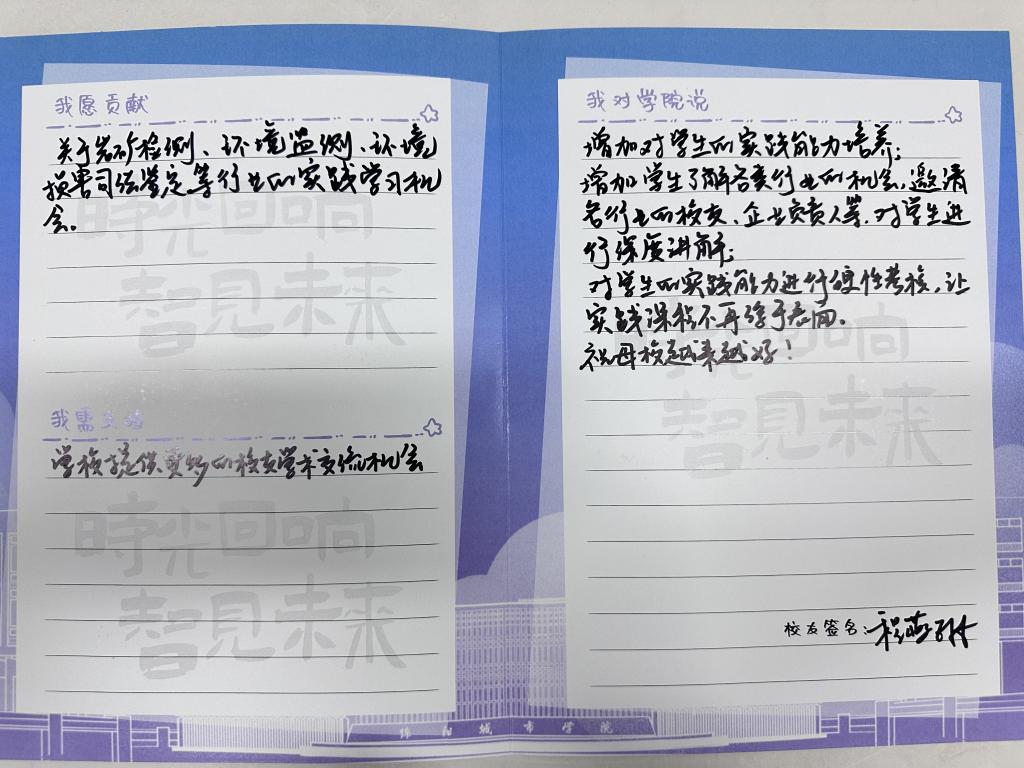 我愿贡献
关于岩矿检测、环境监测、环境
损害司法鉴定等行业的实践学习机
会。
時光回响
智见未来
我需支持
学校提供更多的校友学术交流机会
時光回响
智见未来
我对学院说
增加对学生的实践能力培养；
增加学生了解各类行业的机会，邀请
各行业的校友、企业负责人等，对学生进
行深度讲解；
对学生的实践能力进行硬性考核，让
实践课程不再浮于表面。
祝母校越来越好！
時光回响
智见未来
校友签名：程
绵阳城市学院